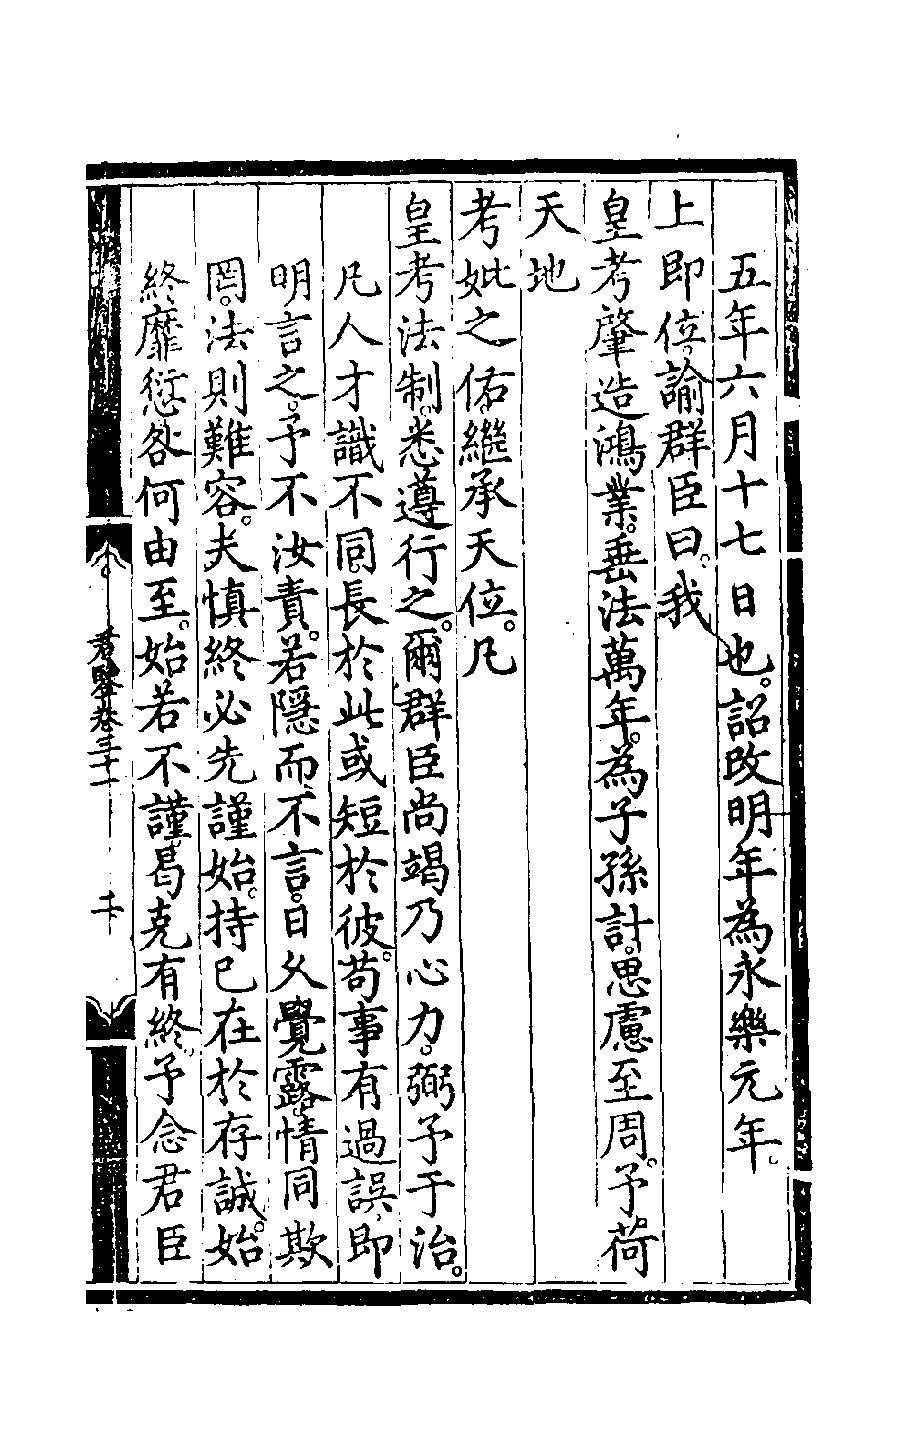 五年六月十七日也。詔改明年為永樂元年。
上即位。諭群臣曰。我
皇考肇造鴻業。垂法萬年。為子孫計。思慮至周。予荷
天地
考妣之佑。繼承天位。凡
皇考法制。悉遵行之。爾群臣尚竭乃心力。弼予于治。
凡人才識不同。長於此或短於彼。苟事有過誤。即
明言之。予不汝責。若隱而不言。日久覺露。情同欺
罔。法則難容。夫慎終必先謹始。持己在於存誠。始
終靡愆。咎何由至。始若不謹。曷克有終。予念君臣
君鑒卷三十一
二十